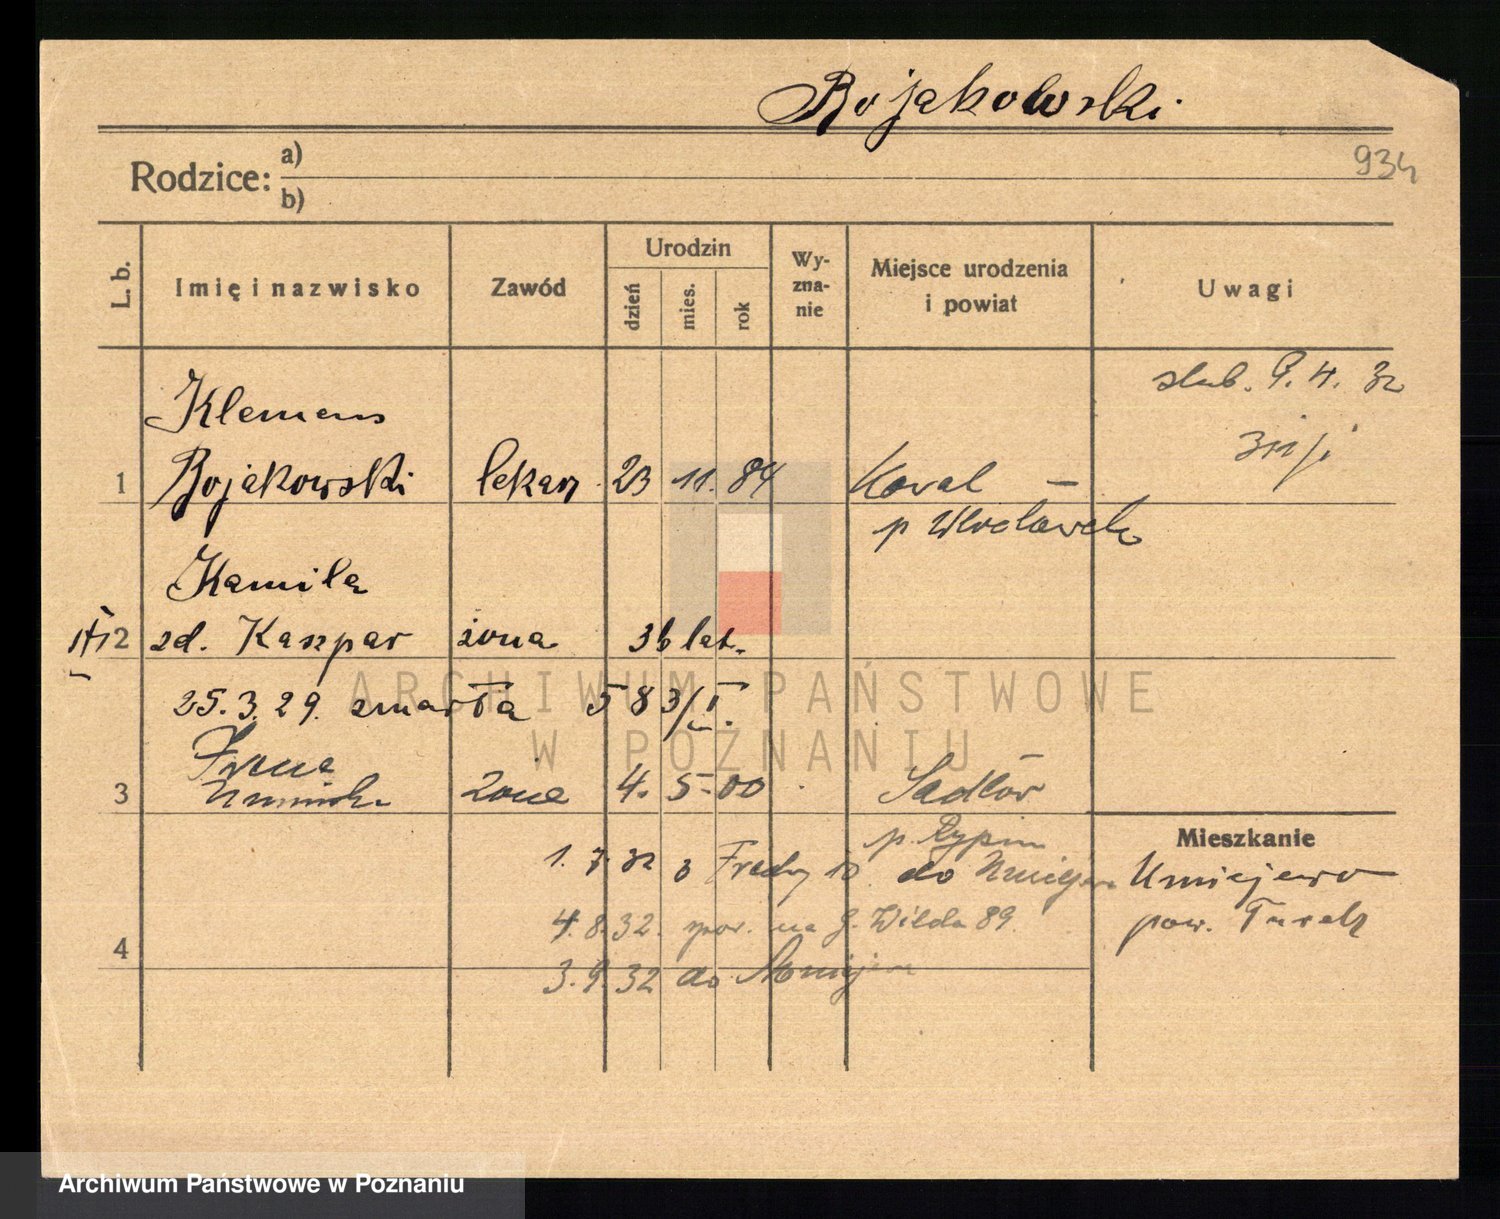 Bojakowski
934
Rodzice: a)
b)
L. b.
Imię i nazwisko
Zawód
Urodzin
dzień
mies.
rok
Wy-
zna-
nie
Miejsce urodzenia
i powiat
Uwagi
slub. 9. 4. 32
Klemens
1 Bojakowski lekarz 23 11. 84 Koval
p Włocławek
Kamila
2 zd. Kaszpar żona 36 lat.
25. 3. 29. zmarła 583/I.
Irena
3 żona 4. 5. 00 Sadłów
p. Rypin
Mieszkanie
1. 7. 32 z Fredry 10 do Uniejewo
Uniejewo
pow. Turek
4. 8. 32. na G. Wilda 89.
4
3. 9. 32 do
ARCHIWUM PAŃSTWOWE
W POZNANIU
Archiwum Państwowe w Poznaniu